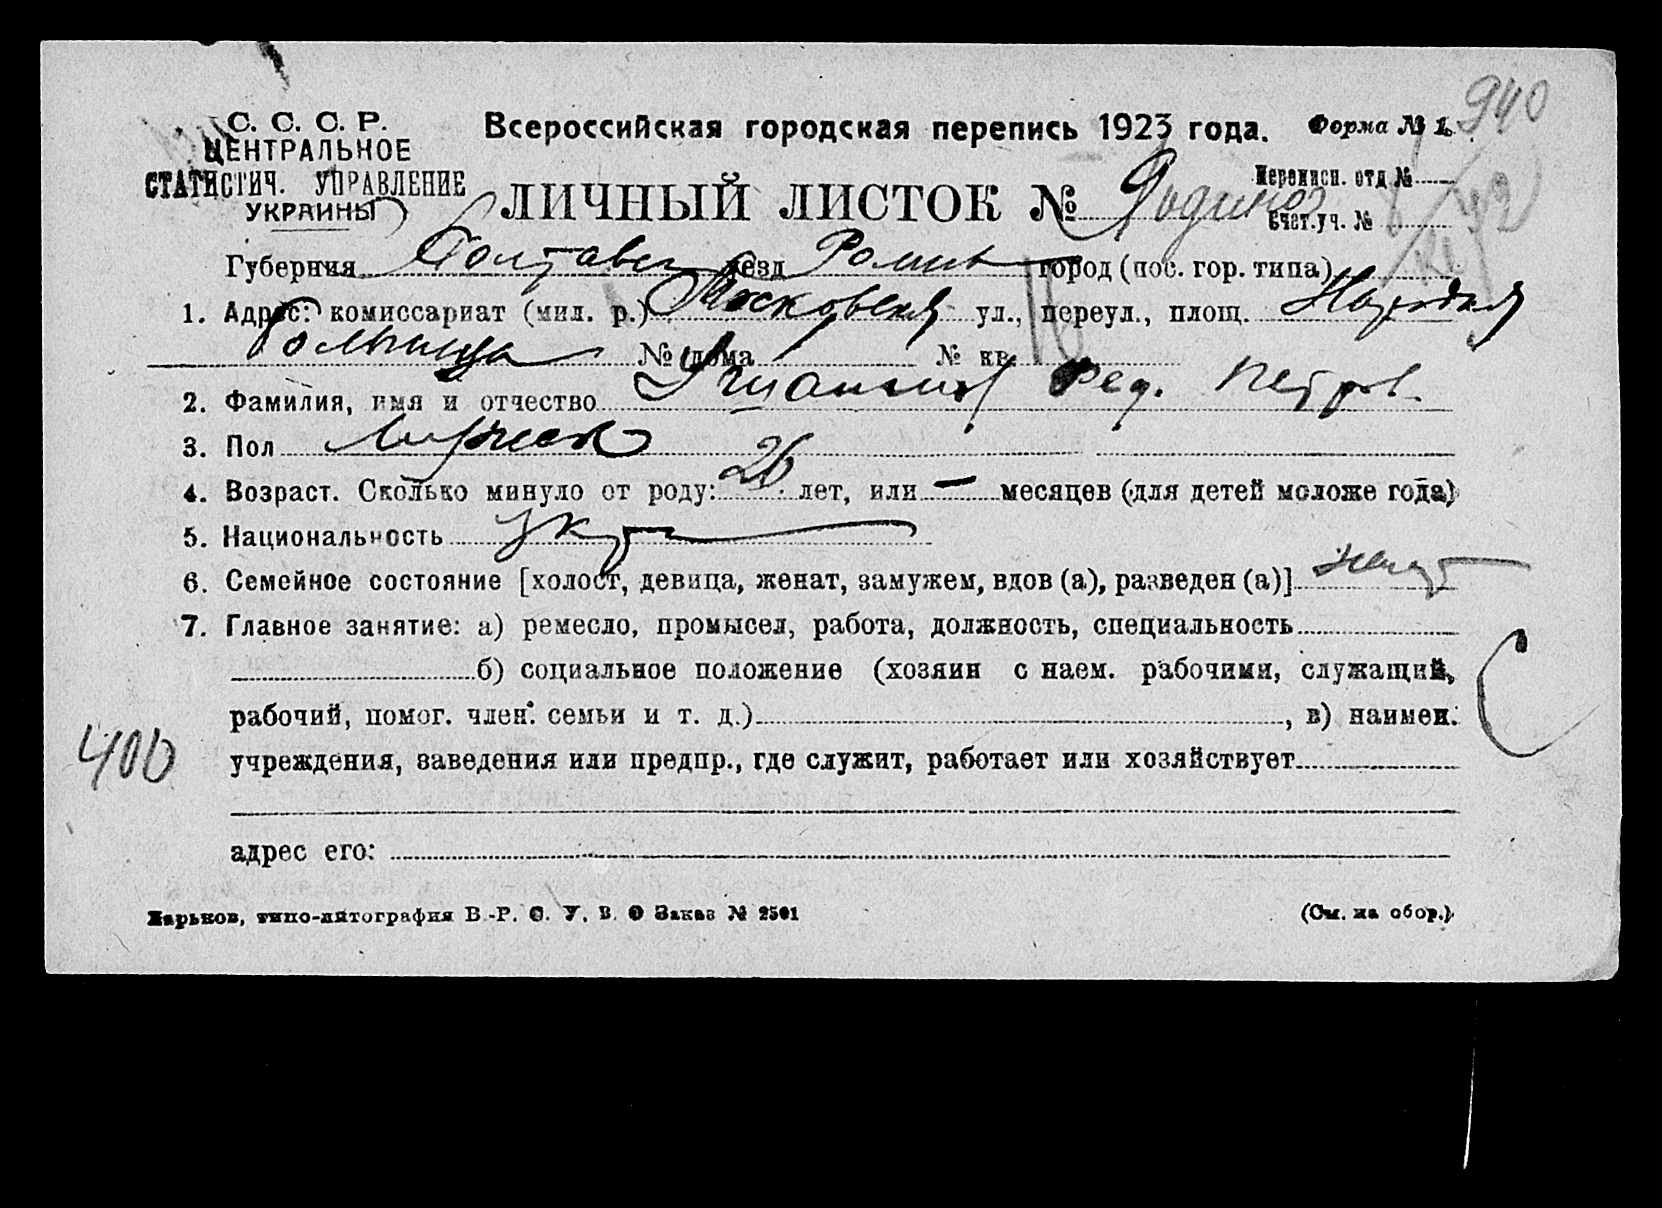 940
С. С. С. Р.
ЦЕНТРАЛЬНОЕ
СТАТИСТИЧ. УПРАВЛЕНИЕ
УКРАИНЫ
Всероссийская городская перепись 1923 года.
Форма № 1.
ЛИЧНЫЙ ЛИСТОК №
Переписн. отд №
Счет.уч. №
Губерния Полтавск уезд Ромен город (пос. гор. типа)
1. Адрес: комиссариат (мил. р.) Московская ул., переул., площ. Народная
больница № дома № кв.
2. Фамилия, имя и отчество Фед. Петров.
3. Пол Мужеск
4. Возраст. Сколько минуло от роду: 26 лет, или — месяцев (для детей моложе года)
5. Национальность Укр
6. Семейное состояние [холост, девица, женат, замужем, вдов (а), разведен (а)] женат
7. Главное занятие: а) ремесло, промысел, работа, должность, специальность
б) социальное положение (хозяин с наем. рабочими, служащий,
рабочий, помог. член. семьи и т. д.) , в) наимен.
400
учреждения, заведения или предпр., где служит, работает или хозяйствует
адрес его:
Харьков, типо-литография В.-Р. С. У. В. О Заказ № 2501
(См. на обор.)